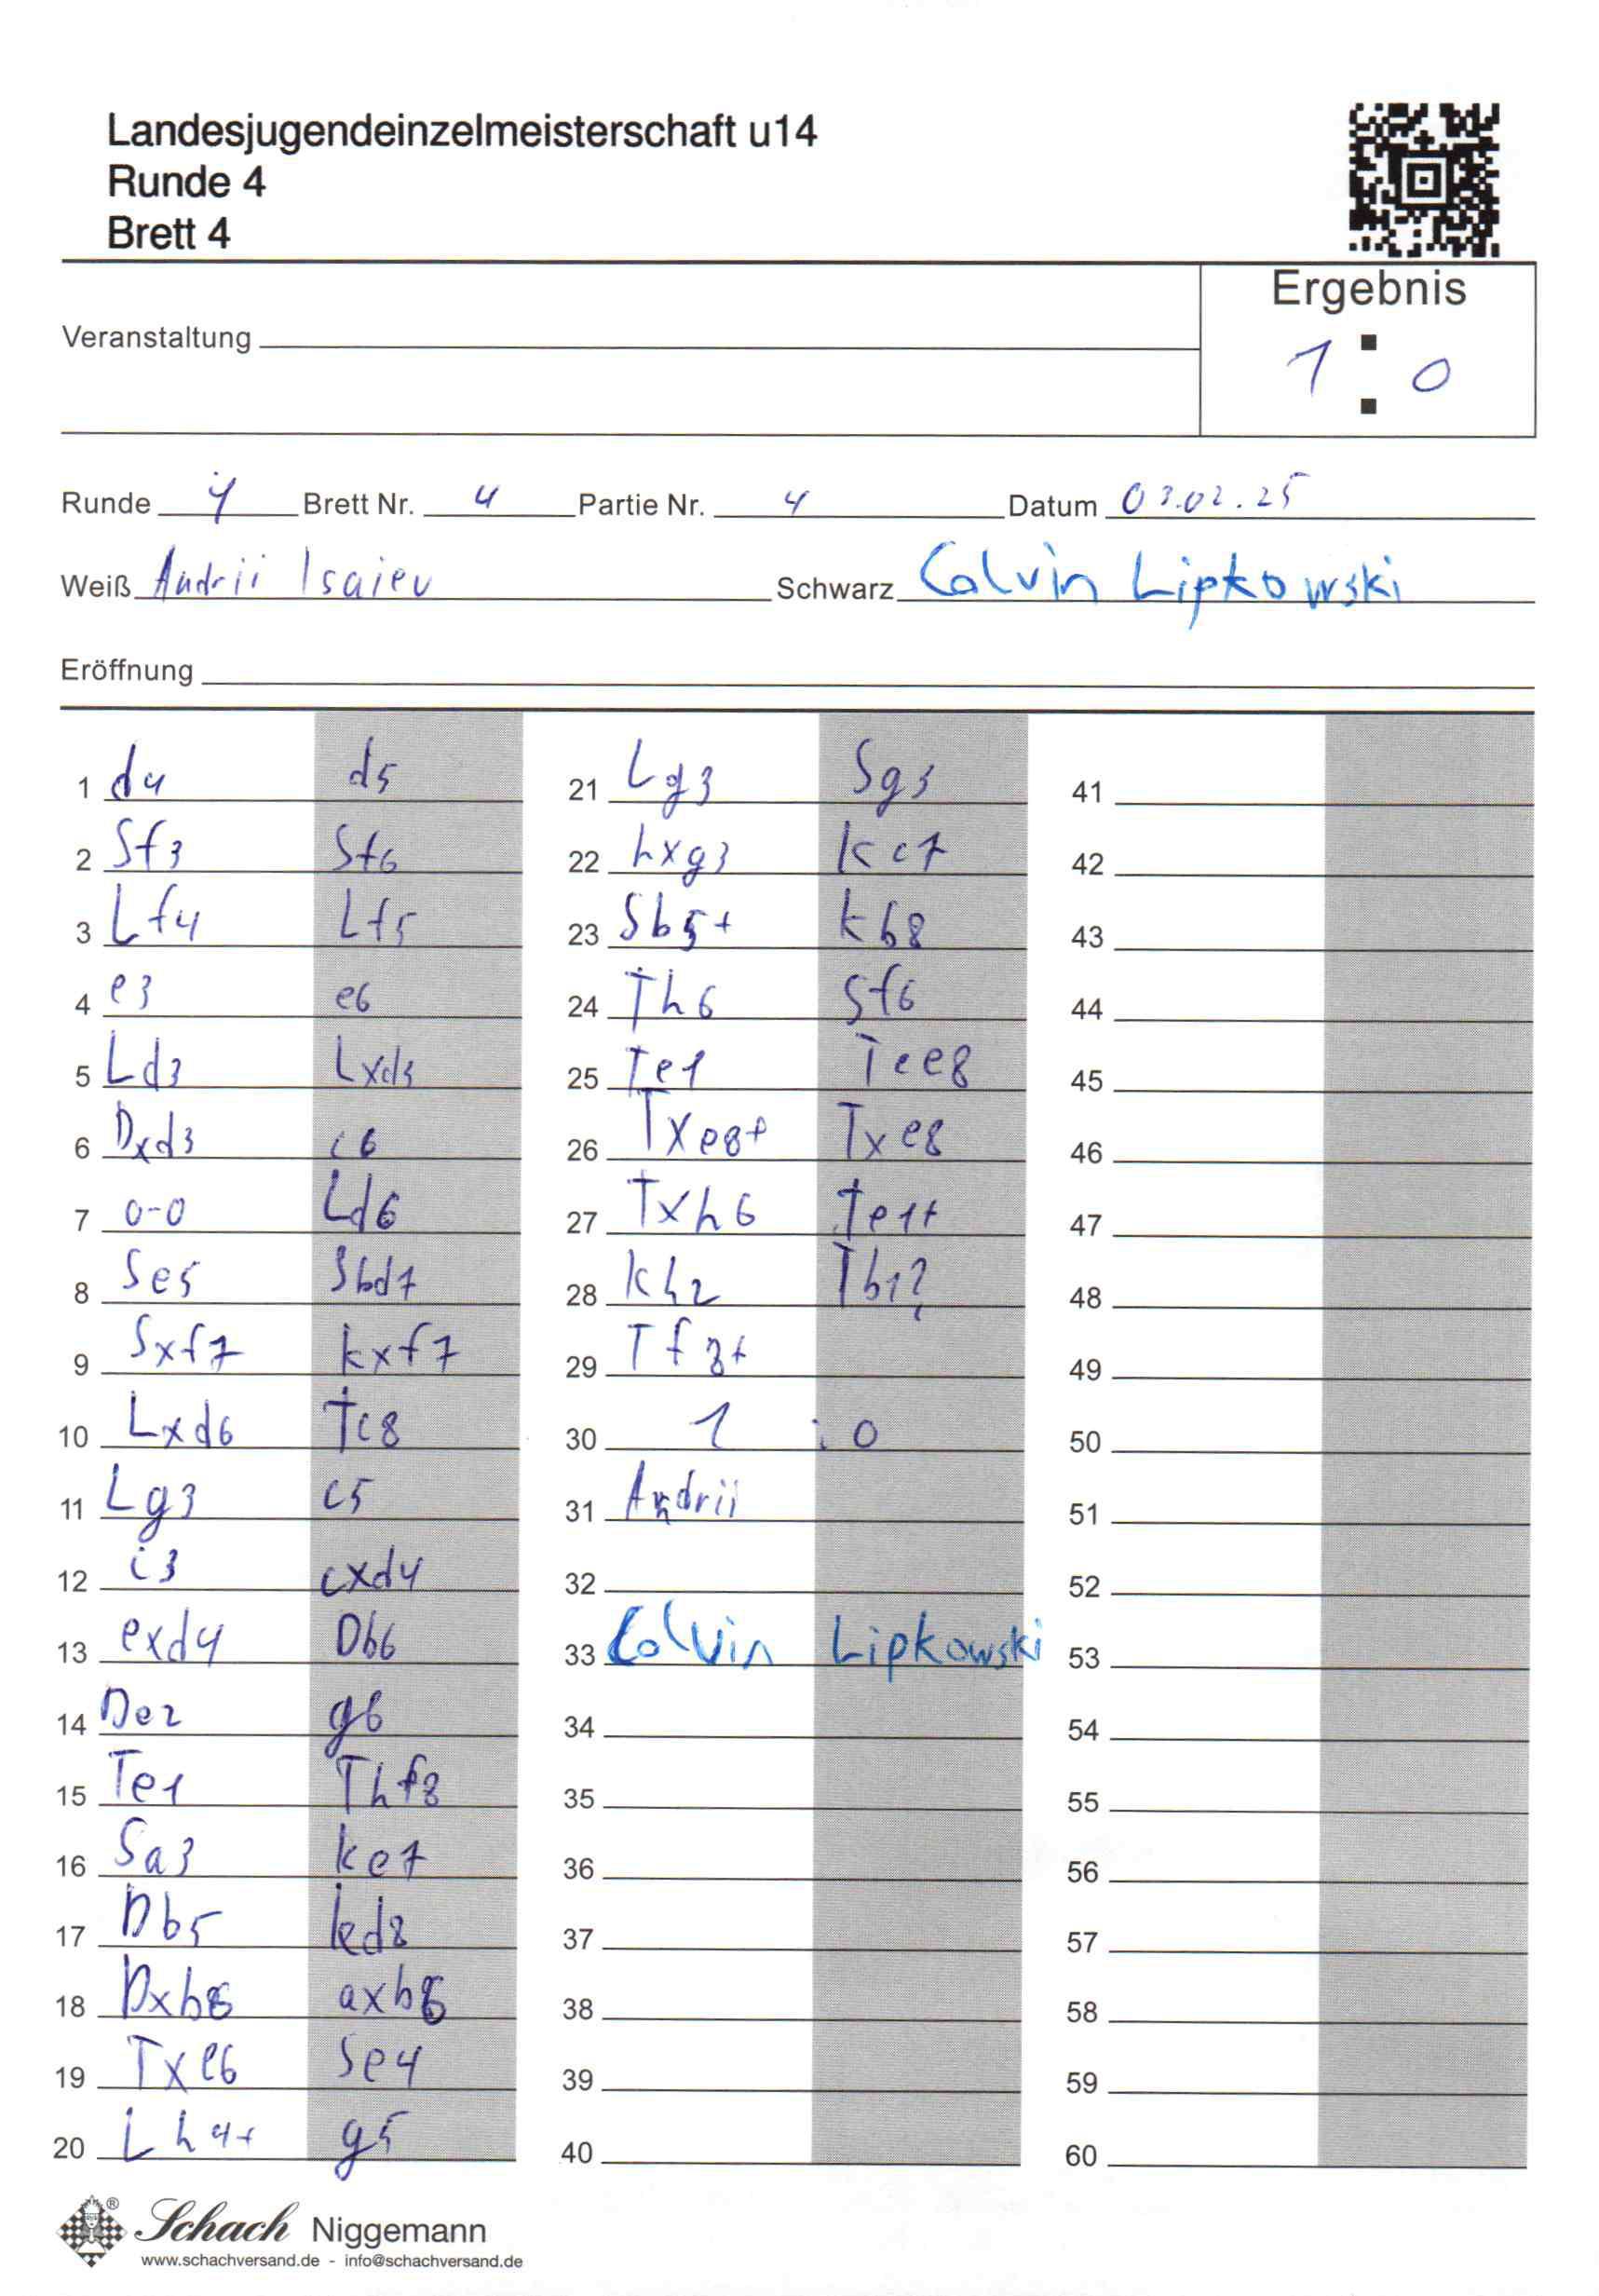 Landesjugendeinzelmeisterschaft u14
Runde 4
Brett 4
Ergebnis
Veranstaltung
1 : 0
Runde 4 Brett Nr. 4 Partie Nr. 4 Datum 03.02.25
Weiß Andrii Isaiev Schwarz Calvin Lipkowski
Eröffnung
1 d4 d5 21 Lg3 Sg3 41
2 Sf3 Sf6 22 hxg3 Kc7 42
3 Lf4 Lf5 23 Sb5+ Kb8 43
4 e3 e6 24 Th6 Sf6 44
5 Ld3 Lxd3 25 Te1 Tce8 45
6 Dxd3 c6 26 Txe8+ Txe8 46
7 0-0 Ld6 27 Txh6 Te1+ 47
8 Se5 Sbd7 28 Kh2 Tb1? 48
9 Sxf7 Kxf7 29 Tf8+ 49
10 Lxd6 Tc8 30 1 : 0 50
11 Lg3 c5 31 Andrii 51
12 c3 cxd4 32 52
13 exd4 Db6 33 Calvin Lipkowski 53
14 De2 g6 34 54
15 Te1 Thf8 35 55
16 Sa3 Ke7 36 56
17 Db5 Kd8 37 57
18 Dxb6 axb6 38 58
19 Txe6 Se4 39 59
20 Lh4+ g5 40 60
Schach Niggemann
www.schachversand.de - info@schachversand.de